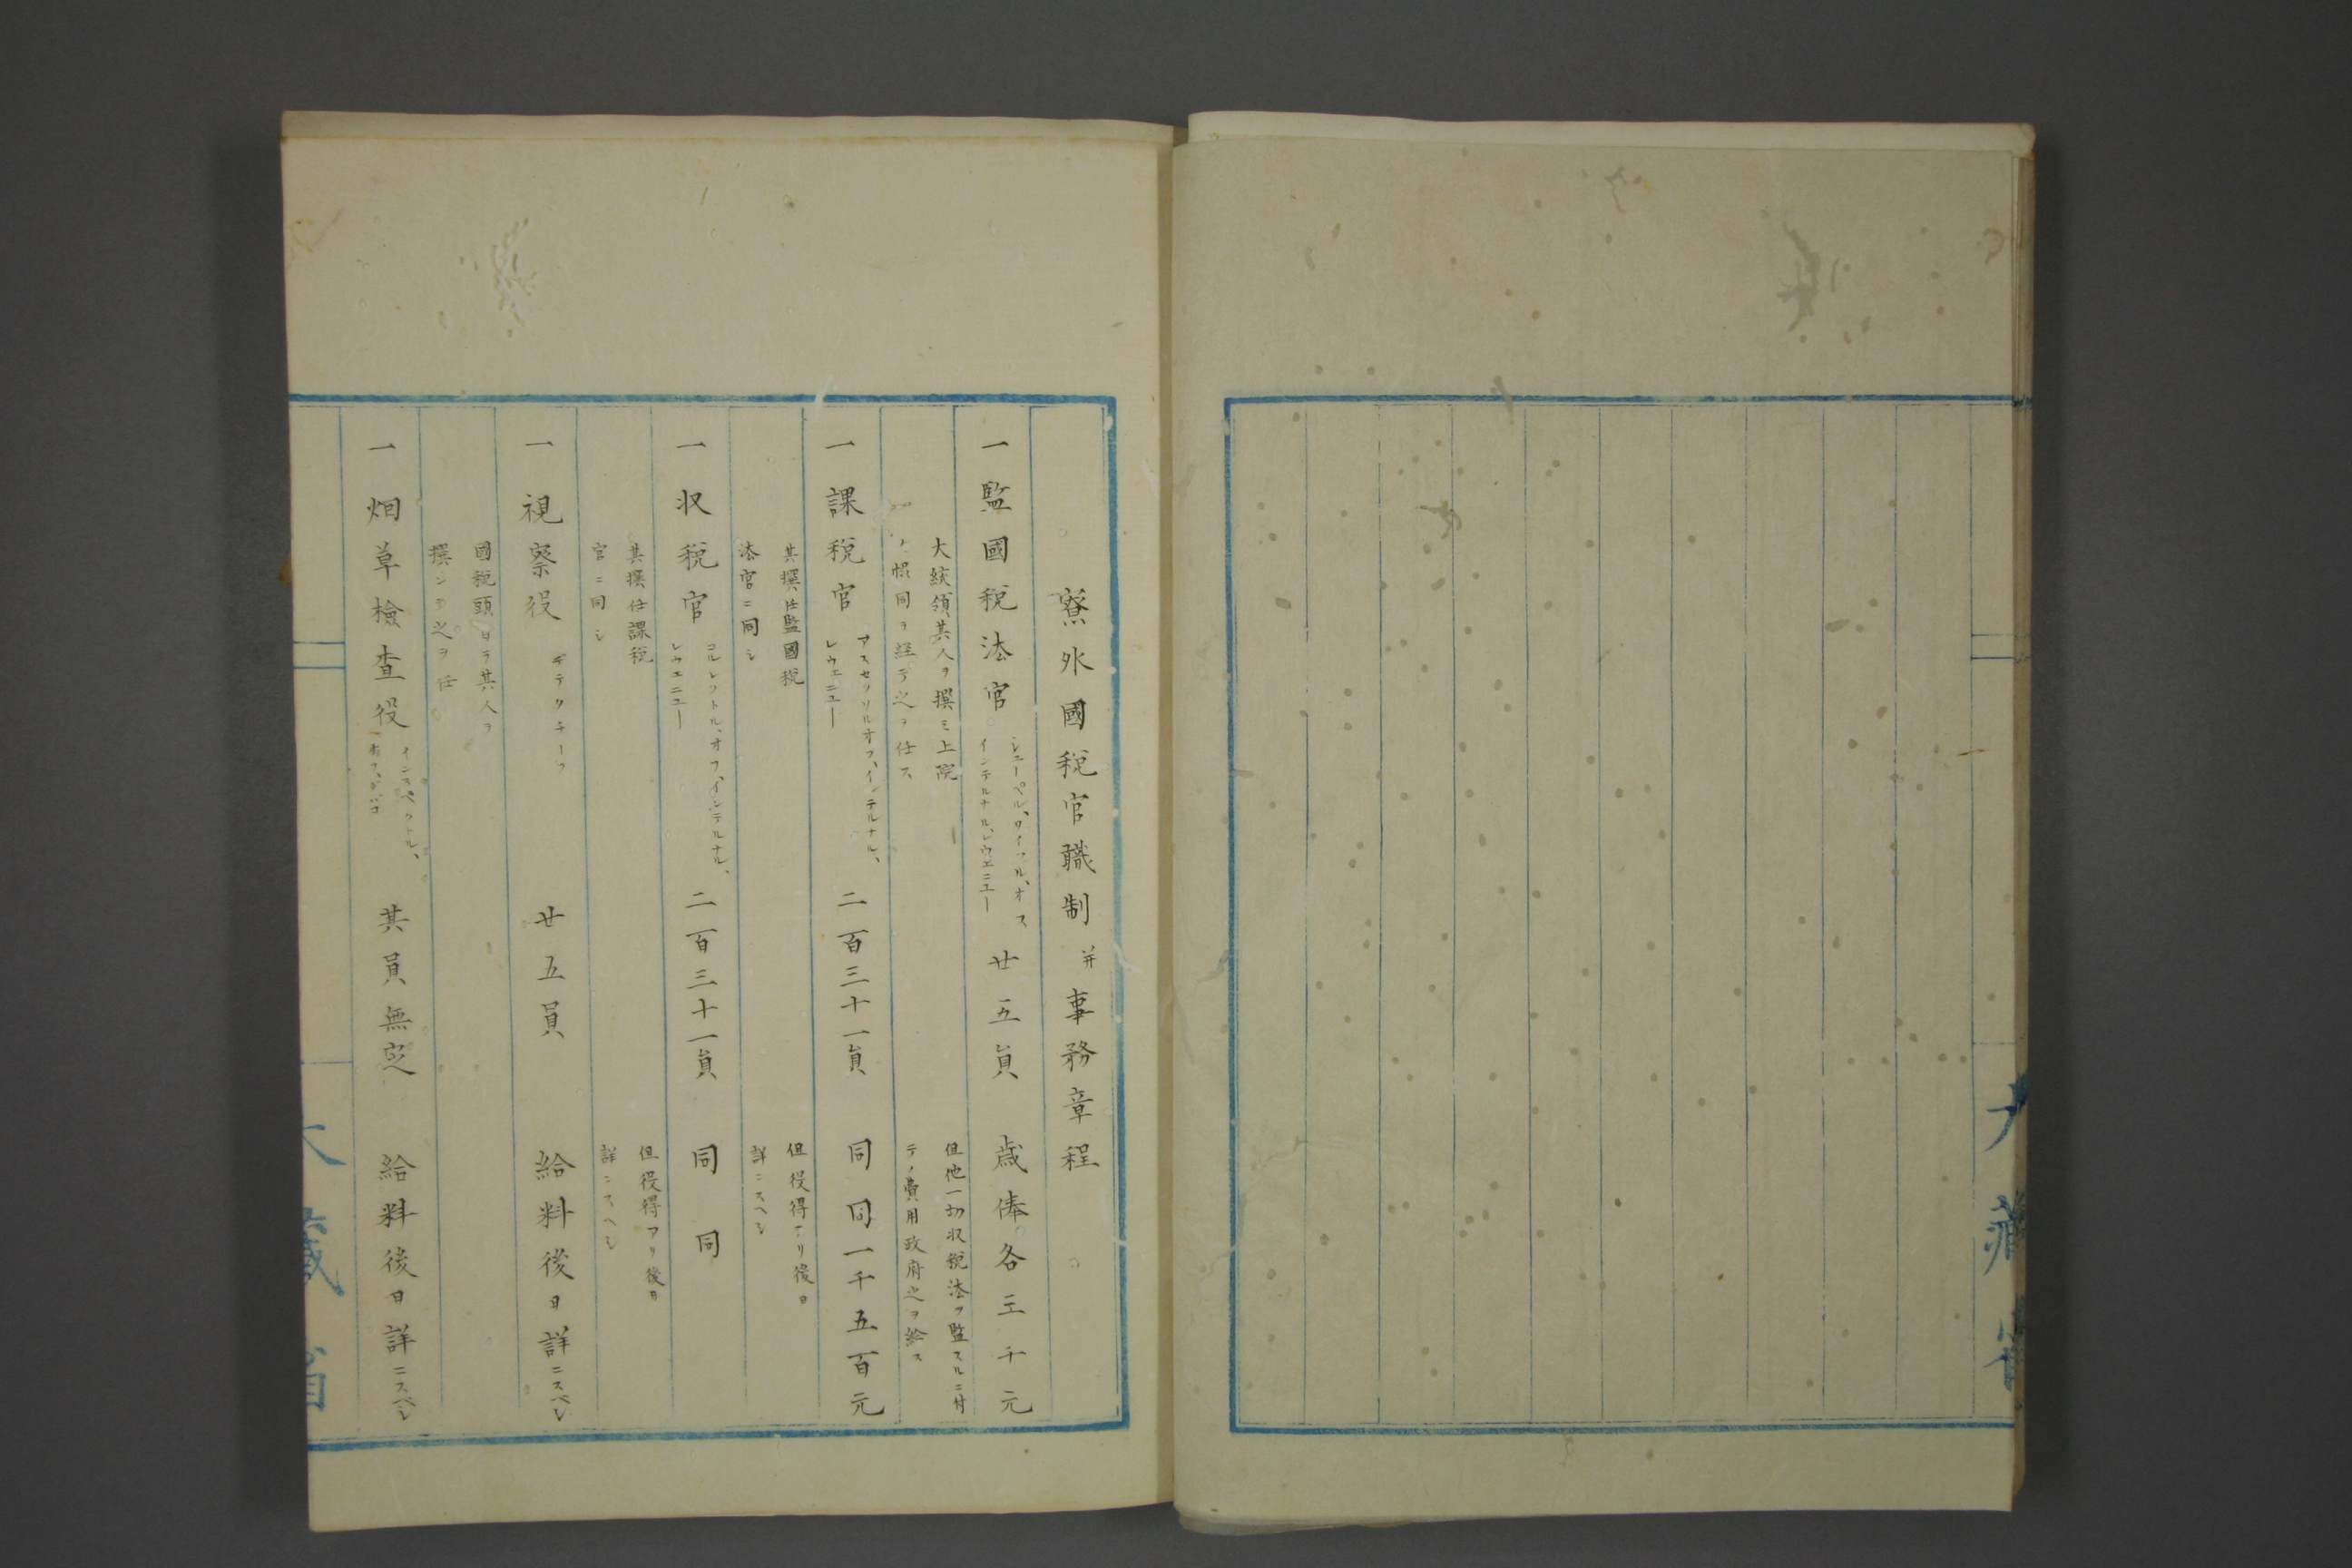 寮外國税官職制并事務章程
一監國税法官 シユーペル、ワイソル、オフ インテルナル、レウエニユー 廿五員 歳俸各三千元
大統領其人ヲ撰ミ上院 但他一切収税法ヲ監スルニ付
ノ協同ヲ経テ之ヲ任ス テノ費用政府之ヲ給ス
一課税官 アスセツソルオフ、インテルナル、レウエニユー 二百三十一員 同同一千五百元
其撰任監國税 但役得アリ後日
法官ニ同シ 詳ニスヘシ
一収税官 コルレツトル、オフ、インテルナル、レウエニユー 二百三十一員 同同
其撰任課税 但役得アリ後日
官ニ同シ 詳ニスヘシ
一視察役 デテクチーフ 廿五員 給料後日詳ニスベシ
國税頭ヨリ其人ヲ
撰ンテ之ヲ任
一烟草檢査役 インスペクトル、オフ、タバコ 其員無定 給料後日詳ニスベシ
大藏省
大藏省